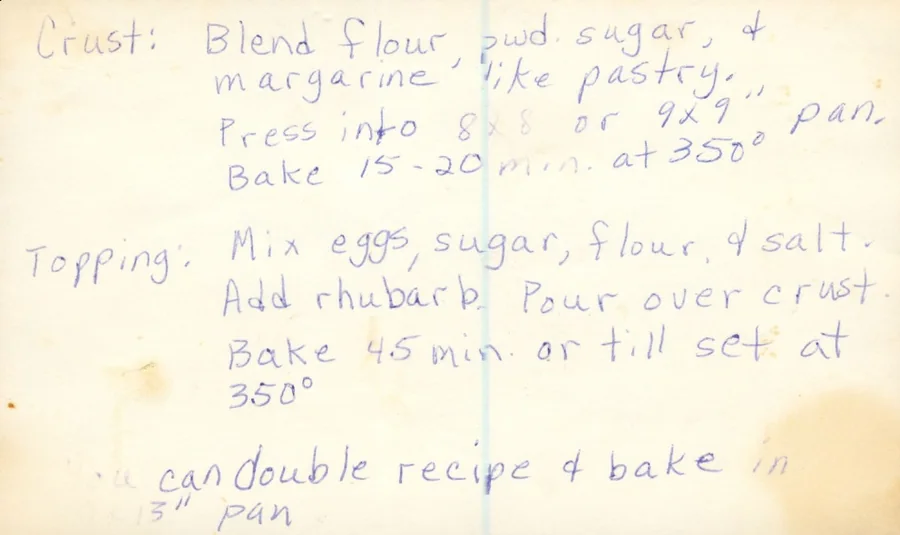 Crust: Blend flour, pwd. sugar, &
margarine like pastry.
Press into 8x8 or 9x9" pan.
Bake 15-20 min. at 350°
Topping: Mix eggs, sugar, flour, & salt.
Add rhubarb. Pour over crust.
Bake 45 min. or till set at
350°
can double recipe & bake in
3" pan